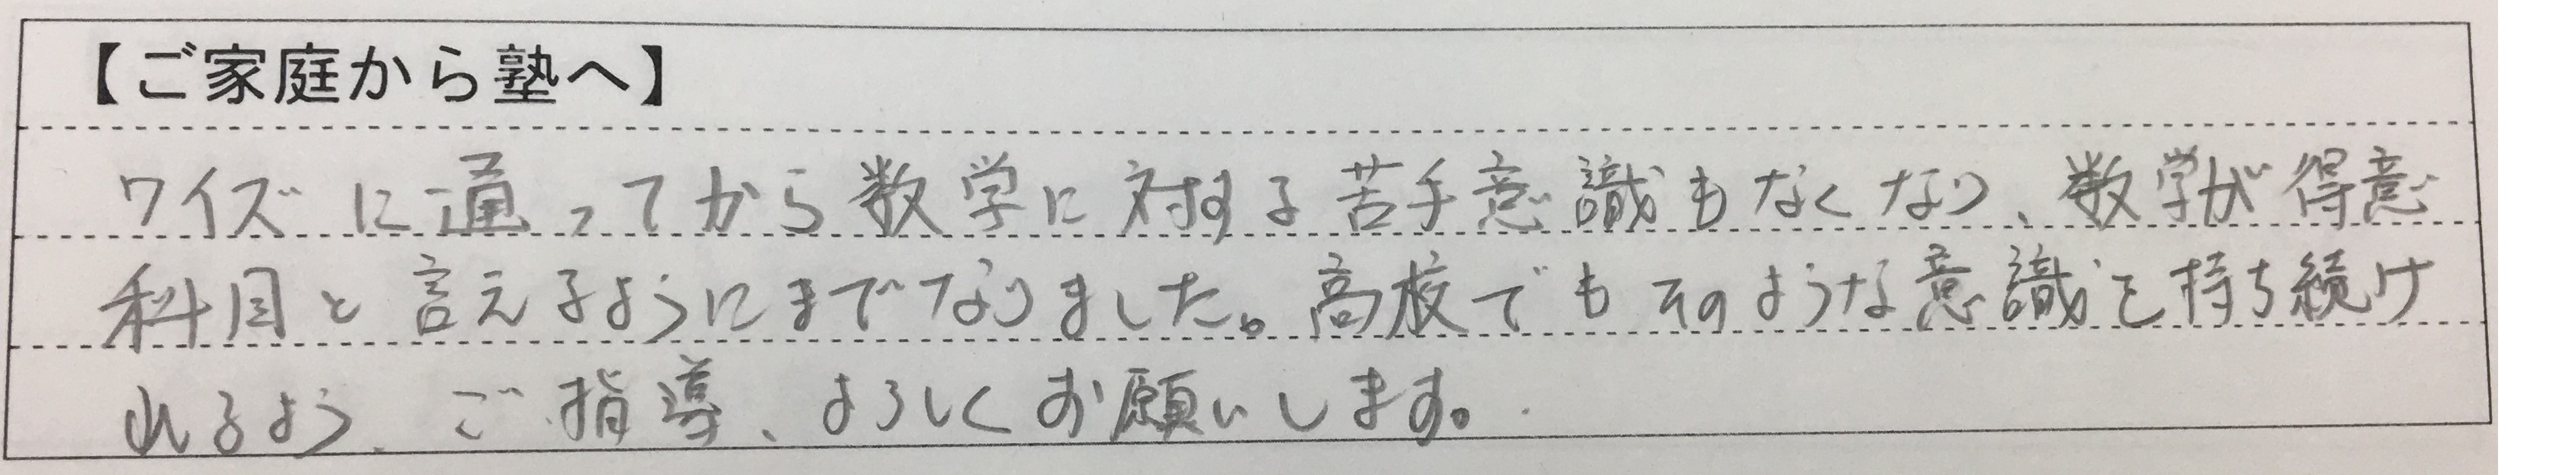 【ご家庭から塾へ】
ワイズに通ってから数学に対する苦手意識もなくなり、数学が得意
科目と言えるようにまでなりました。高校でもそのような意識を持ち続け
れるよう、ご指導、よろしくお願いします。